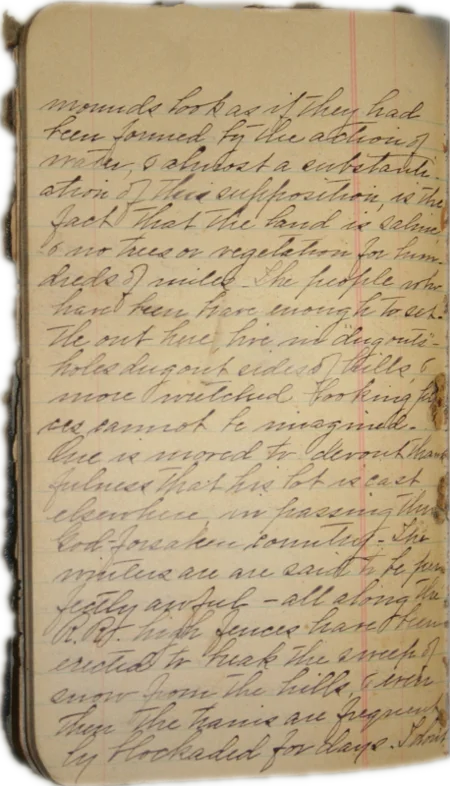 mounds look as if they had
been formed by the action of
water, & almost a substanti-
ation of this supposition, is the
fact that the land is saline
& no trees or vegetation for hun-
dreds of miles. The people who
have been have enough to set-
tle out here, live in "dugouts"-
holes dug out sides of hills, &
more wretched looking pla-
ces cannot be imagined.
One is moved to devout thank
fulness that his lot is cast
elsewhere, in passing this
God-forsaken country - The
winters are are said to be per
fectly awful - all along the
R.R. high fences have been
erected to break the sweep of
snow from the hills, & even
then the trains are frequent
ly blockaded for days. I don't